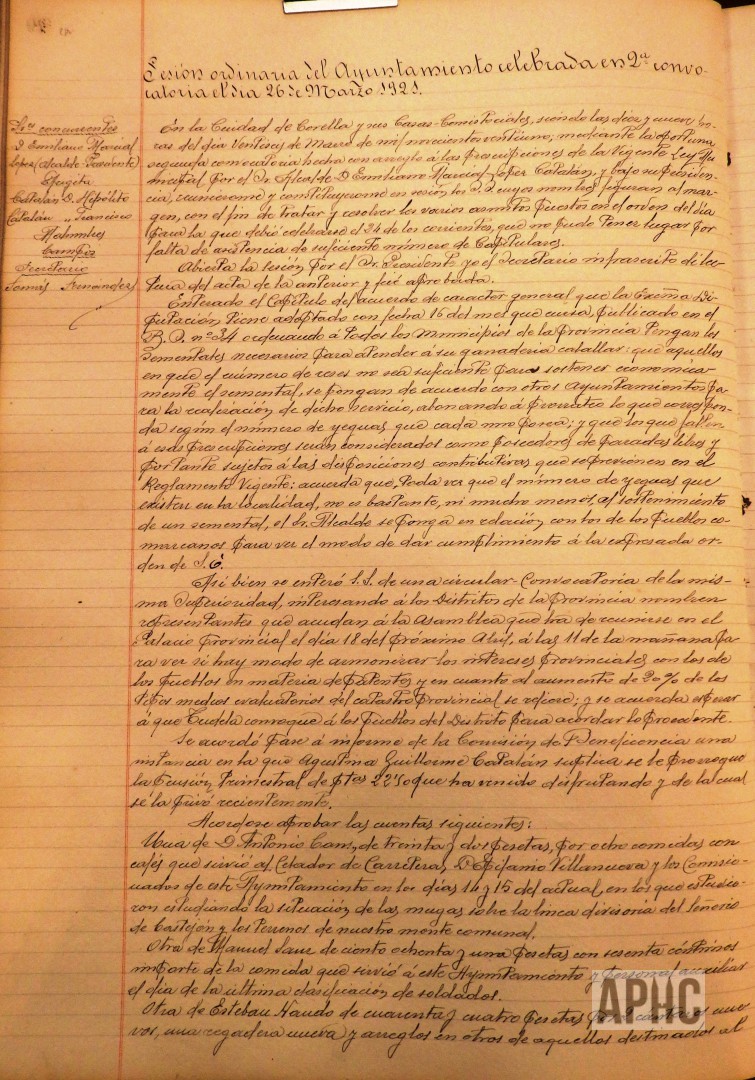 Sesión ordinaria del Ayuntamiento celebrada en 2ª convo-
catoria el dia 26 de Marzo 1921.
Sres concurrentes
D Emiliano Marcial
Lopez (Alcalde Presidente)
Catalán D. Hipólito
Catalán " Francisco
Secretario
Tomás Fernández
En la Ciudad de Corella y sus Casas-Consistoriales, siendo las diez y nueve ho-
ras del día Veintiseis de Marzo de mil novecientos veintiuno; mediante la oportuna
segunda convocatoria hecha con arreglo á las prescripciones de la Vigente Ley Mu-
nicipal por el Sr. Alcalde D. Emiliano Marcial Lopez Catalán, y bajo su presiden-
cia, reunieronse y constituyeronse en sesión los S.S. cuyos nombres figuran al mar-
gen, con el fin de tratar y resolver los varios asuntos puestos en el orden del día
para la que debió celebrarse el 24 de los corrientes, que no pudo tener lugar por
falta de asistencia de suficiente número de Capitulares.
Abierta la sesión por el Sr. Presidente yo el Secretario infrascrito di lec-
tura del acta de la anterior y fué aprobada.
Enterado el Capítulo del acuerdo de caracter general que la Excma Di-
putación tiene adoptado con fecha 16 del mes que cursa, publicado en el
B. O. nº 34 ordenando á todos los Municipios de la Provincia tengan los
sementales necesarios para atender á su ganaderia caballar: que aquellos
en que el número de reses no sea suficiente para sostener económica-
mente el semental, se pongan de acuerdo con otros Ayuntamientos pa-
ra la realización de dicho servicio, abonando á prorrateo lo que corres pon-
da según el número de yeguas que cada uno posea; y que los que falten
á esas prescripciones serán considerados como poseedores de paradas libres y
por tanto sujetos á las disposiciones contributivas que se previenen en el
Reglamento Vigente: acuerda que, toda vez que el número de yeguas que
existen en ha localidad, no es bastante, ni mucho menos, al sostenimiento
de un semental, el Sr. Alcalde se ponga en relación con los de los pueblos co-
marcanos para ver el modo de dar cumplimiento á la expresada or-
den de S. E.
Asi bien se enteró S.S. de una circular-Convocatoria de la mis-
ma Superioridad, interesando á los Distritos de la Provincia nombren
representantes que acudan á la Asamblea que ha de reunirse en el
Palacio Provincial el día 18 del próximo Abril, á las 11 de la mañana pa-
ra ver si hay modo de armonizar los intereses provinciales con los de
los pueblos en materia de patentes y en cuanto al aumento de 20% de los
tipos medios evaluatorios del catastro provincial se refiere; y se acuerda esperar
á que Tudela convoque á los pueblos del Distrito para acordar lo procedente.
Se acordó pase á informe de la Comisión de Beneficencia una
instancia en la que Agustina Guillermo Catalán suplica se le prorrogue
la pensión trimestral de ptas 22'50 que ha venido disfrutando y de la cual
se la privó recientemente.
Acordose aprobar las cuentas siguientes:
Una de D. Antonio Cans, de treinta y dos pesetas, por ocho comidas con
cafés que sirvió al Celador de Carretera, D. Epifanio Villanueva y los Comisio-
nados de este Ayuntamiento en los días 14 y 15 del actual, en los que estuvie-
ron estudiando la situación de las mugas sobre la linea divisoria del Señorio
de Castejón y los terrenos de nuestro monte comunal.
Otra de Manuel Sanz de ciento ochenta y una pesetas con sesenta céntimos
importe de la comida que sirvió á este Ayuntamiento y personal auxiliar
el día de la última clasificación de soldados.
Otra de Esteban Naudo de cuarenta y cuatro pesetas por cántaros nue-
vos, una regadera nueva y arreglos en otros de aquellos destinados al
APHC